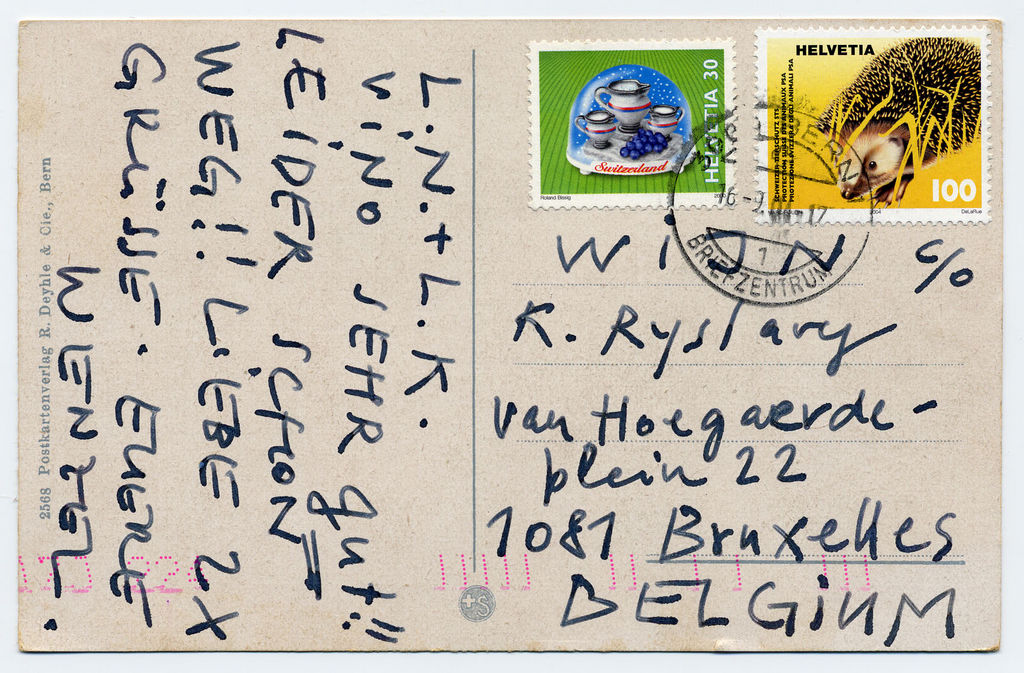 L.N.+L.K.
VINO SEHR gut!!
LEIDER SCHON
WEG!! LIEBE 2X
GRÜSSE. EUERE
WENZEL.
2568 Postkartenverlag R. Deyhle & Cie., Bern
HELVETIA 30
Switzerland
Roland Bissig
HELVETIA
SCHWEIZER TIERSCHUTZ STS
PROTECTION SUISSE DES ANIMAUX PSA
PROTEZIONE SVIZZERA DEGLI ANIMALI PSA
100
2004
DeLaRue
BERN
16-9
17
1
BRIEFZENTRUM
WIJN c/o
K. Ryslavy
van Hoegaerde-
plein 22
1081 Bruxelles
BELGIUM
+S